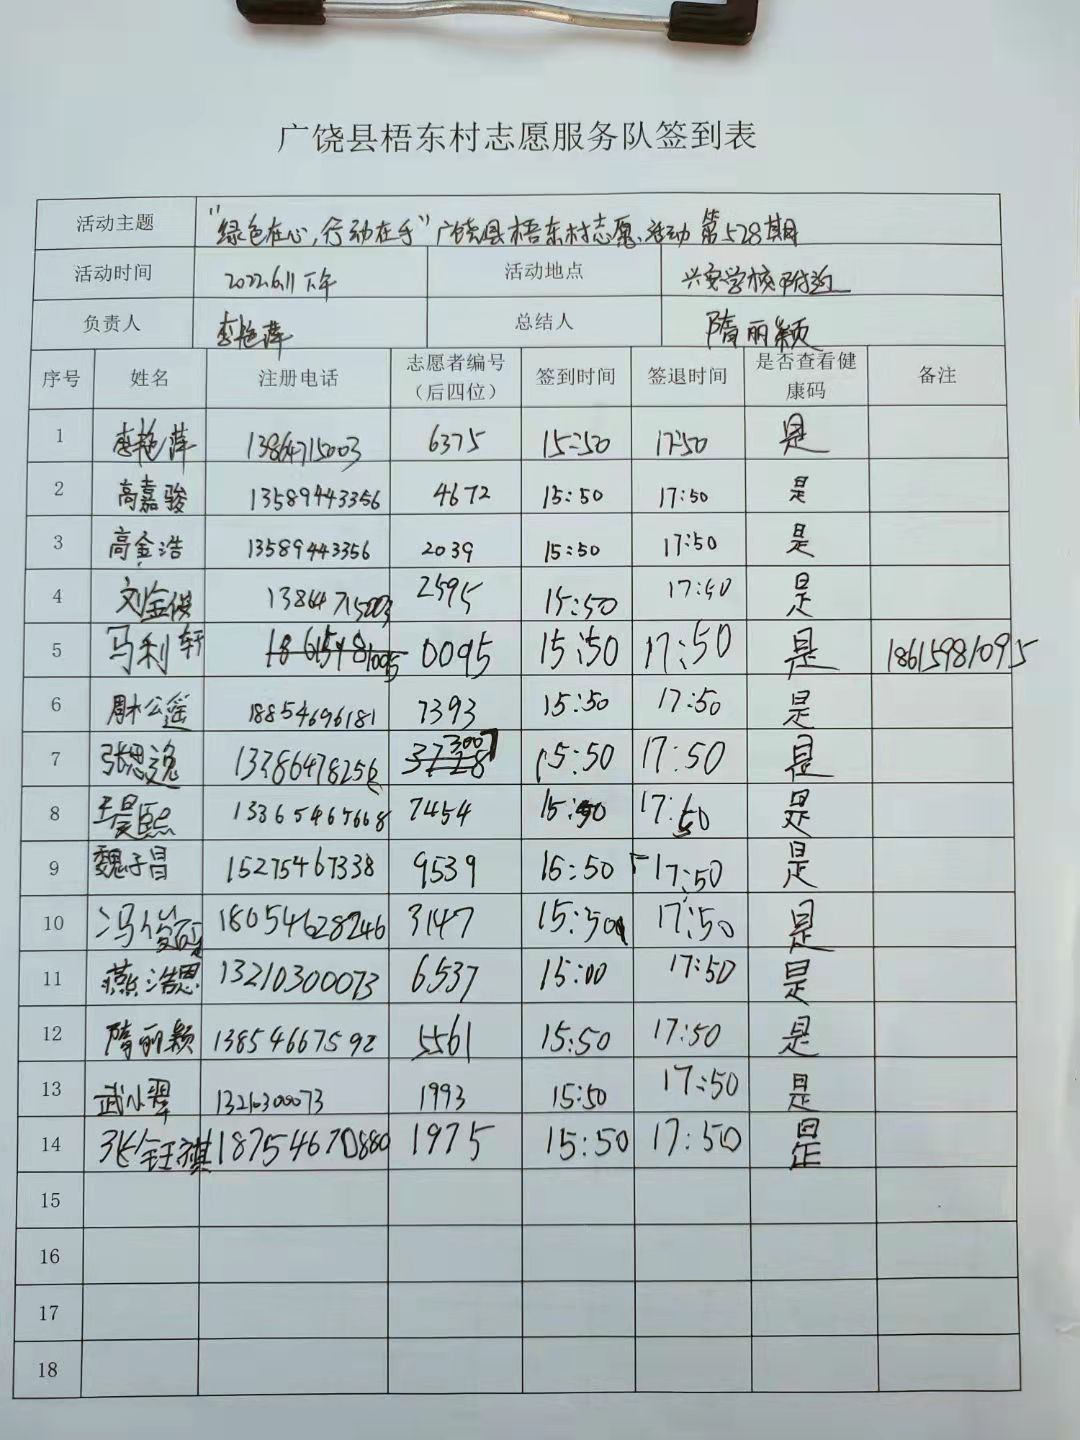 广饶县梧东村志愿服务队签到表
活动主题 "绿色在心,行动在手"广饶县梧东村志愿活动 第528期
活动时间 2022.6.11 下午 活动地点 兴安学校附近
负责人 李艳萍 总结人 隋丽颖
序号 姓名 注册电话 志愿者编号（后四位） 签到时间 签退时间 是否查看健康码 备注
1 李艳萍 13864715003 6375 15:50 17:50 是
2 高嘉骏 13589443356 4672 15:50 17:50 是
3 高金浩 13589443356 2039 15:50 17:50 是
4 刘金俊 13864715003 2595 15:50 17:50 是
5 马利轩 0095 15:50 17:50 是 18615981095
6 周公遥 18854696181 7393 15:50 17:50 是
7 张思逸 13386478256 3007 15:50 17:50 是
8 王昊熙 13365465668 7454 15:50 17:50 是
9 魏子昌 15275467338 9539 15:50 17:50 是
10 冯俊 18054628246 3147 15:50 17:50 是
11 燕浩思 13210300073 6537 15:00 17:50 是
12 隋丽颖 13854667592 5561 15:50 17:50 是
13 武小翠 13210300073 1993 15:50 17:50 是
14 张钰祺 18754670880 1975 15:50 17:50 是
15
16
17
18